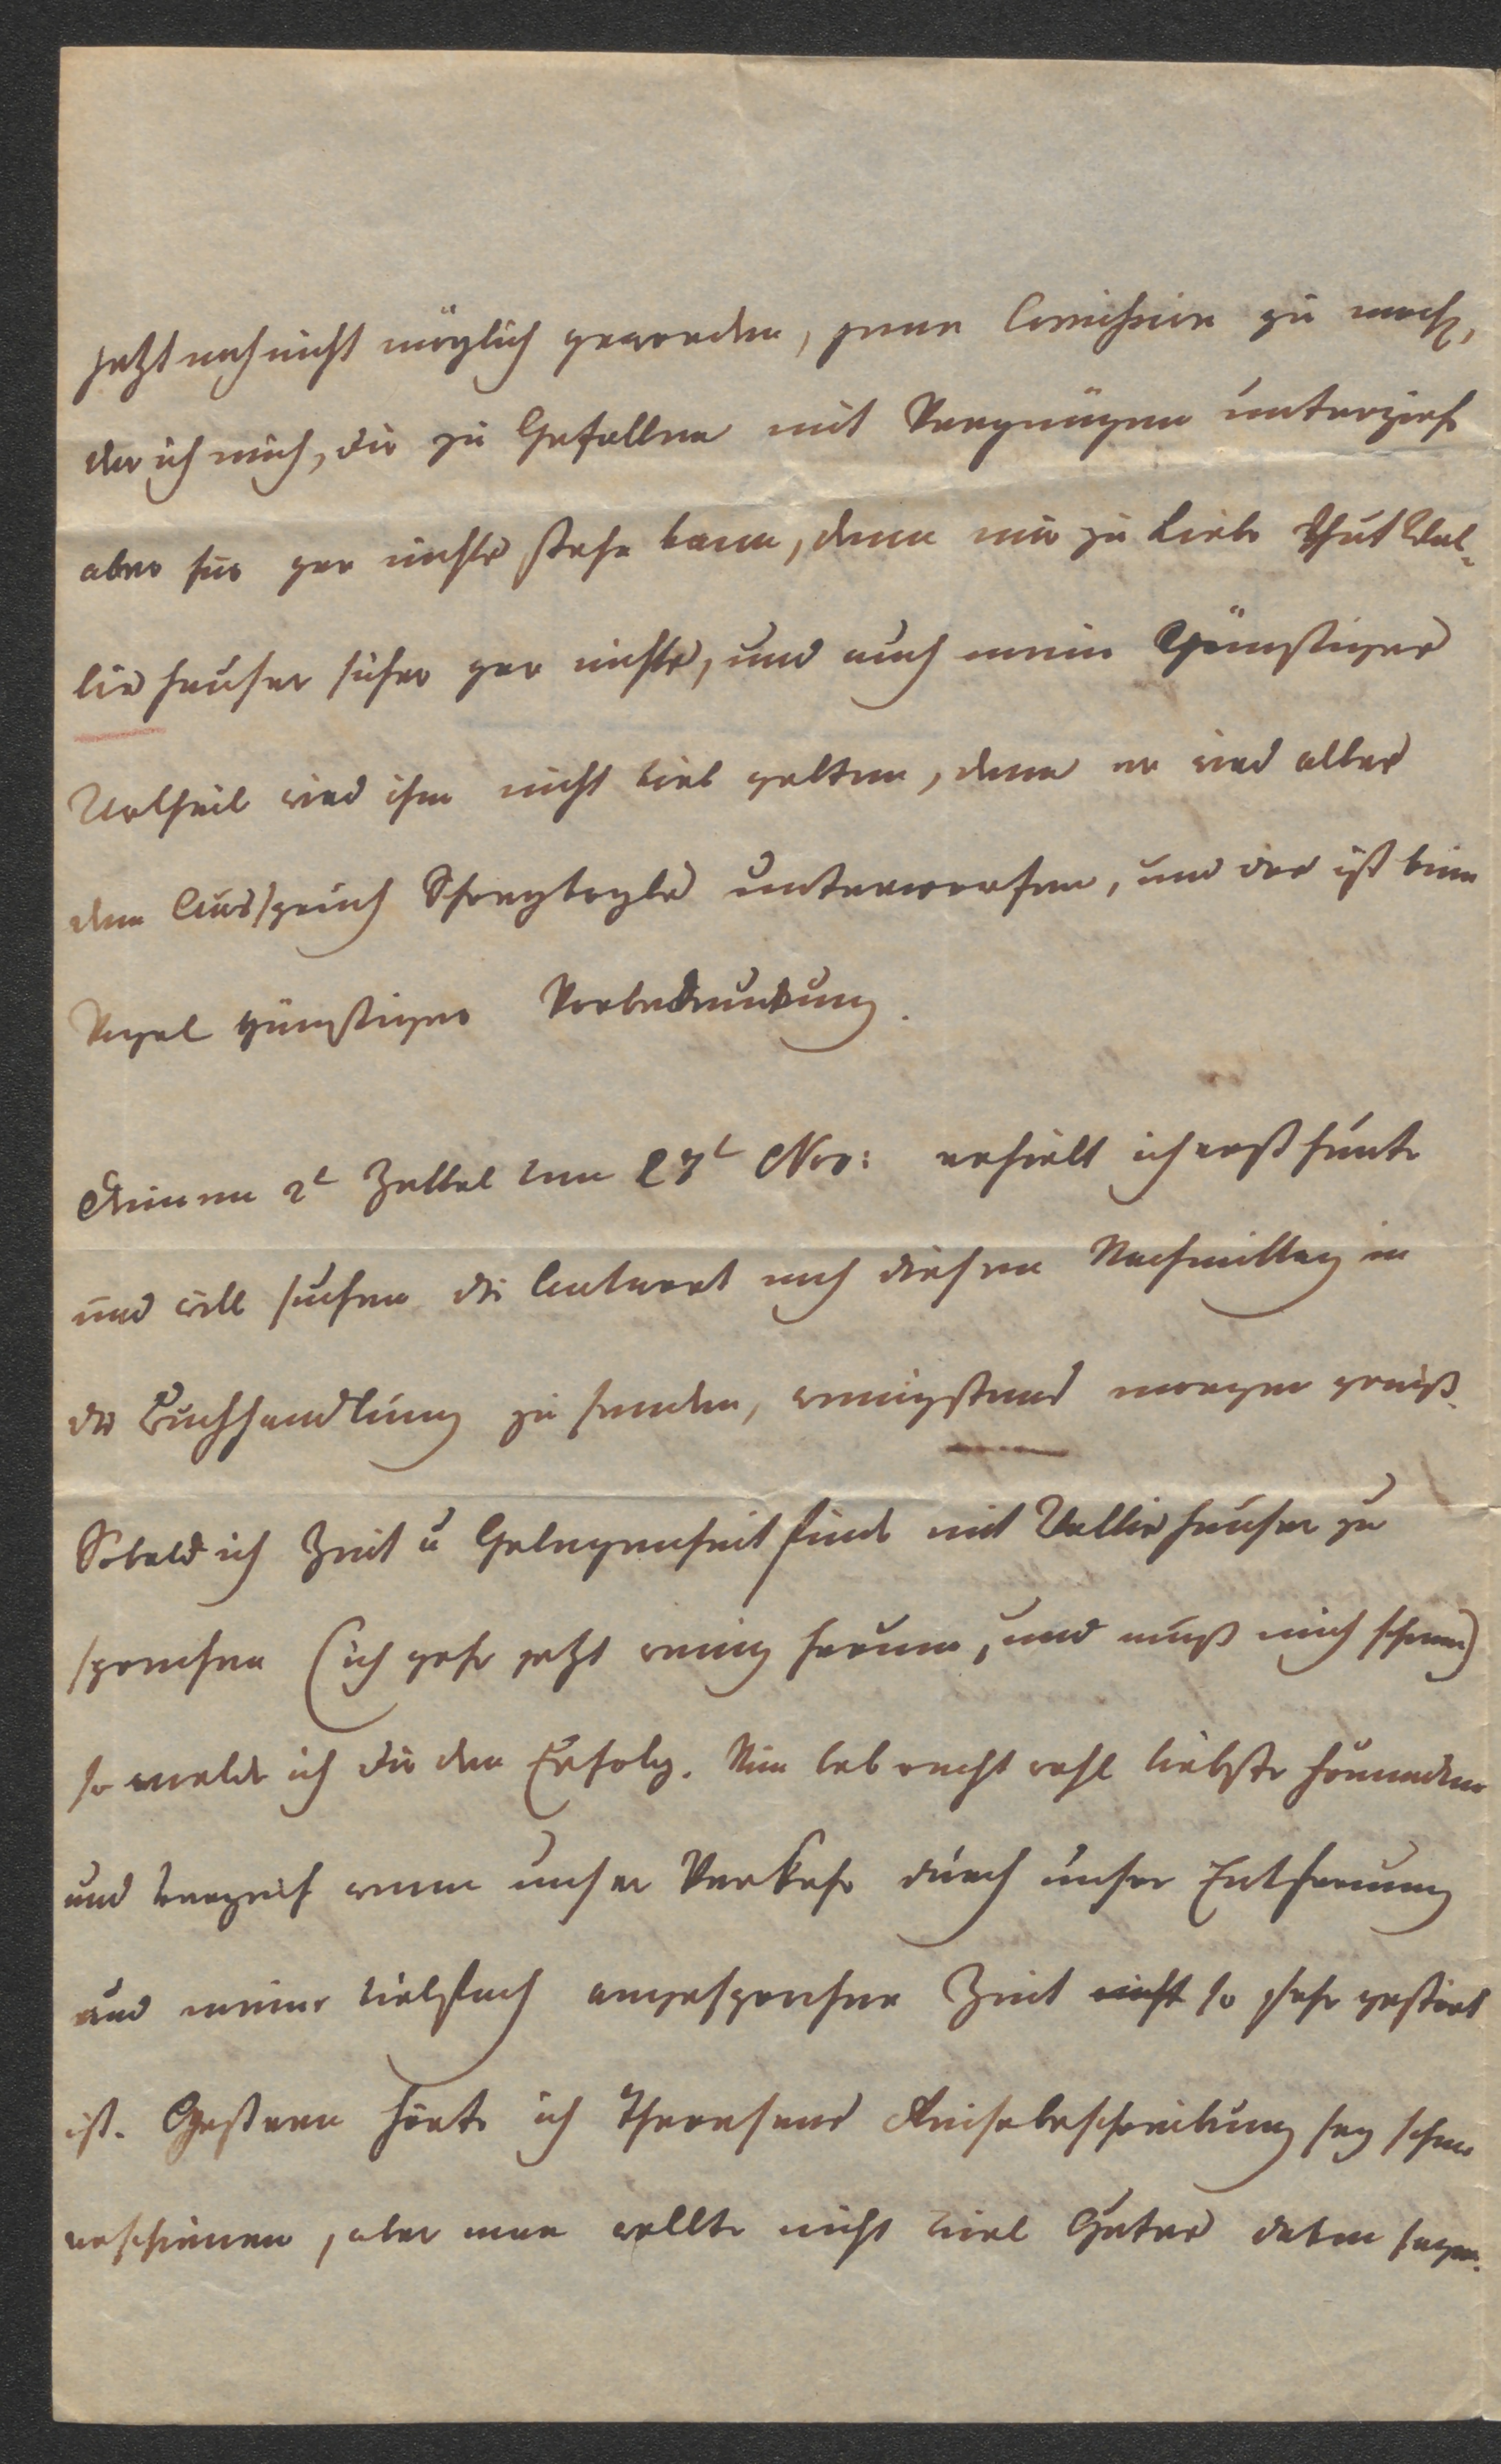 jetzt noch nicht möglich geworden, jene Comission zu mach,
der ich mich, dir zu Gefallen mit Vergnügen unterzieh
aber für gar nichts stehe kann, denn mir zu Liebe thut Wal-
lishauser sicher gar nichts, und auch mein günstiges
Urtheil wird ihm nicht viel gelten, denn er wird alles
dem Ausspruch Schreyvogls unterworfen, und das ist kein
Vogel günstiger Vorbedeutung.
Deinen 2t Zettel vom 27t Nov: erhielt ich erst heute
und will suchen die Antwort noch diesen Nachmittag in
die Buchhandlung zu senden, wenigstens morgen gewiß.
Sobald ich Zeit u Gelegenheit finde mit Wallishauser zu
sprechen (ich gehe jetzt wenig herum, und muß mich schonen)
so melde ich dir den Erfolg. Nun leb recht wohl liebste Freundin
und verzeih wenn unser Verkehr durch unsre Entfernung
und meine vielfach angesprochene Zeit nicht so sehr gestört
ist. Gestern hörte ich Theresens Reisebeschreibung sey schon
erschienen, aber man wollte nicht viel Gutes davon sagen.